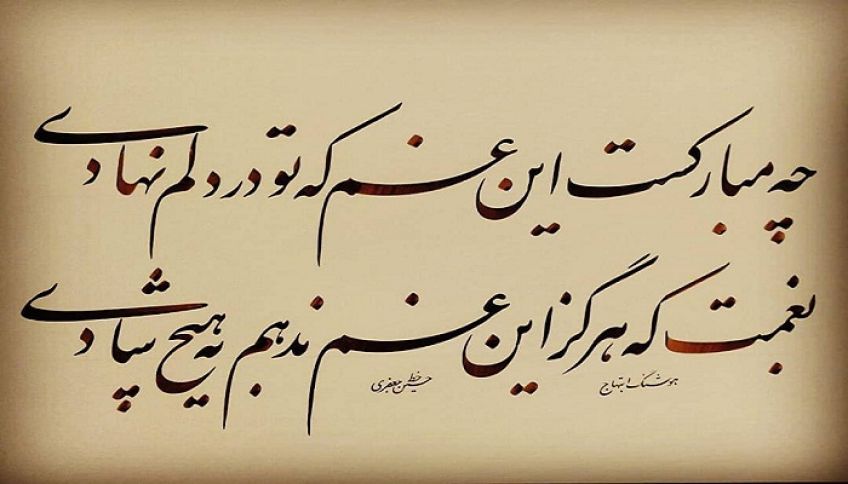 چه مبارکست این غم که تو در دلم نهادی
بغمت که هرگز این غم ندهم به هیچ شادی
هوشنگ ابتهاج
خط حسین جعفری